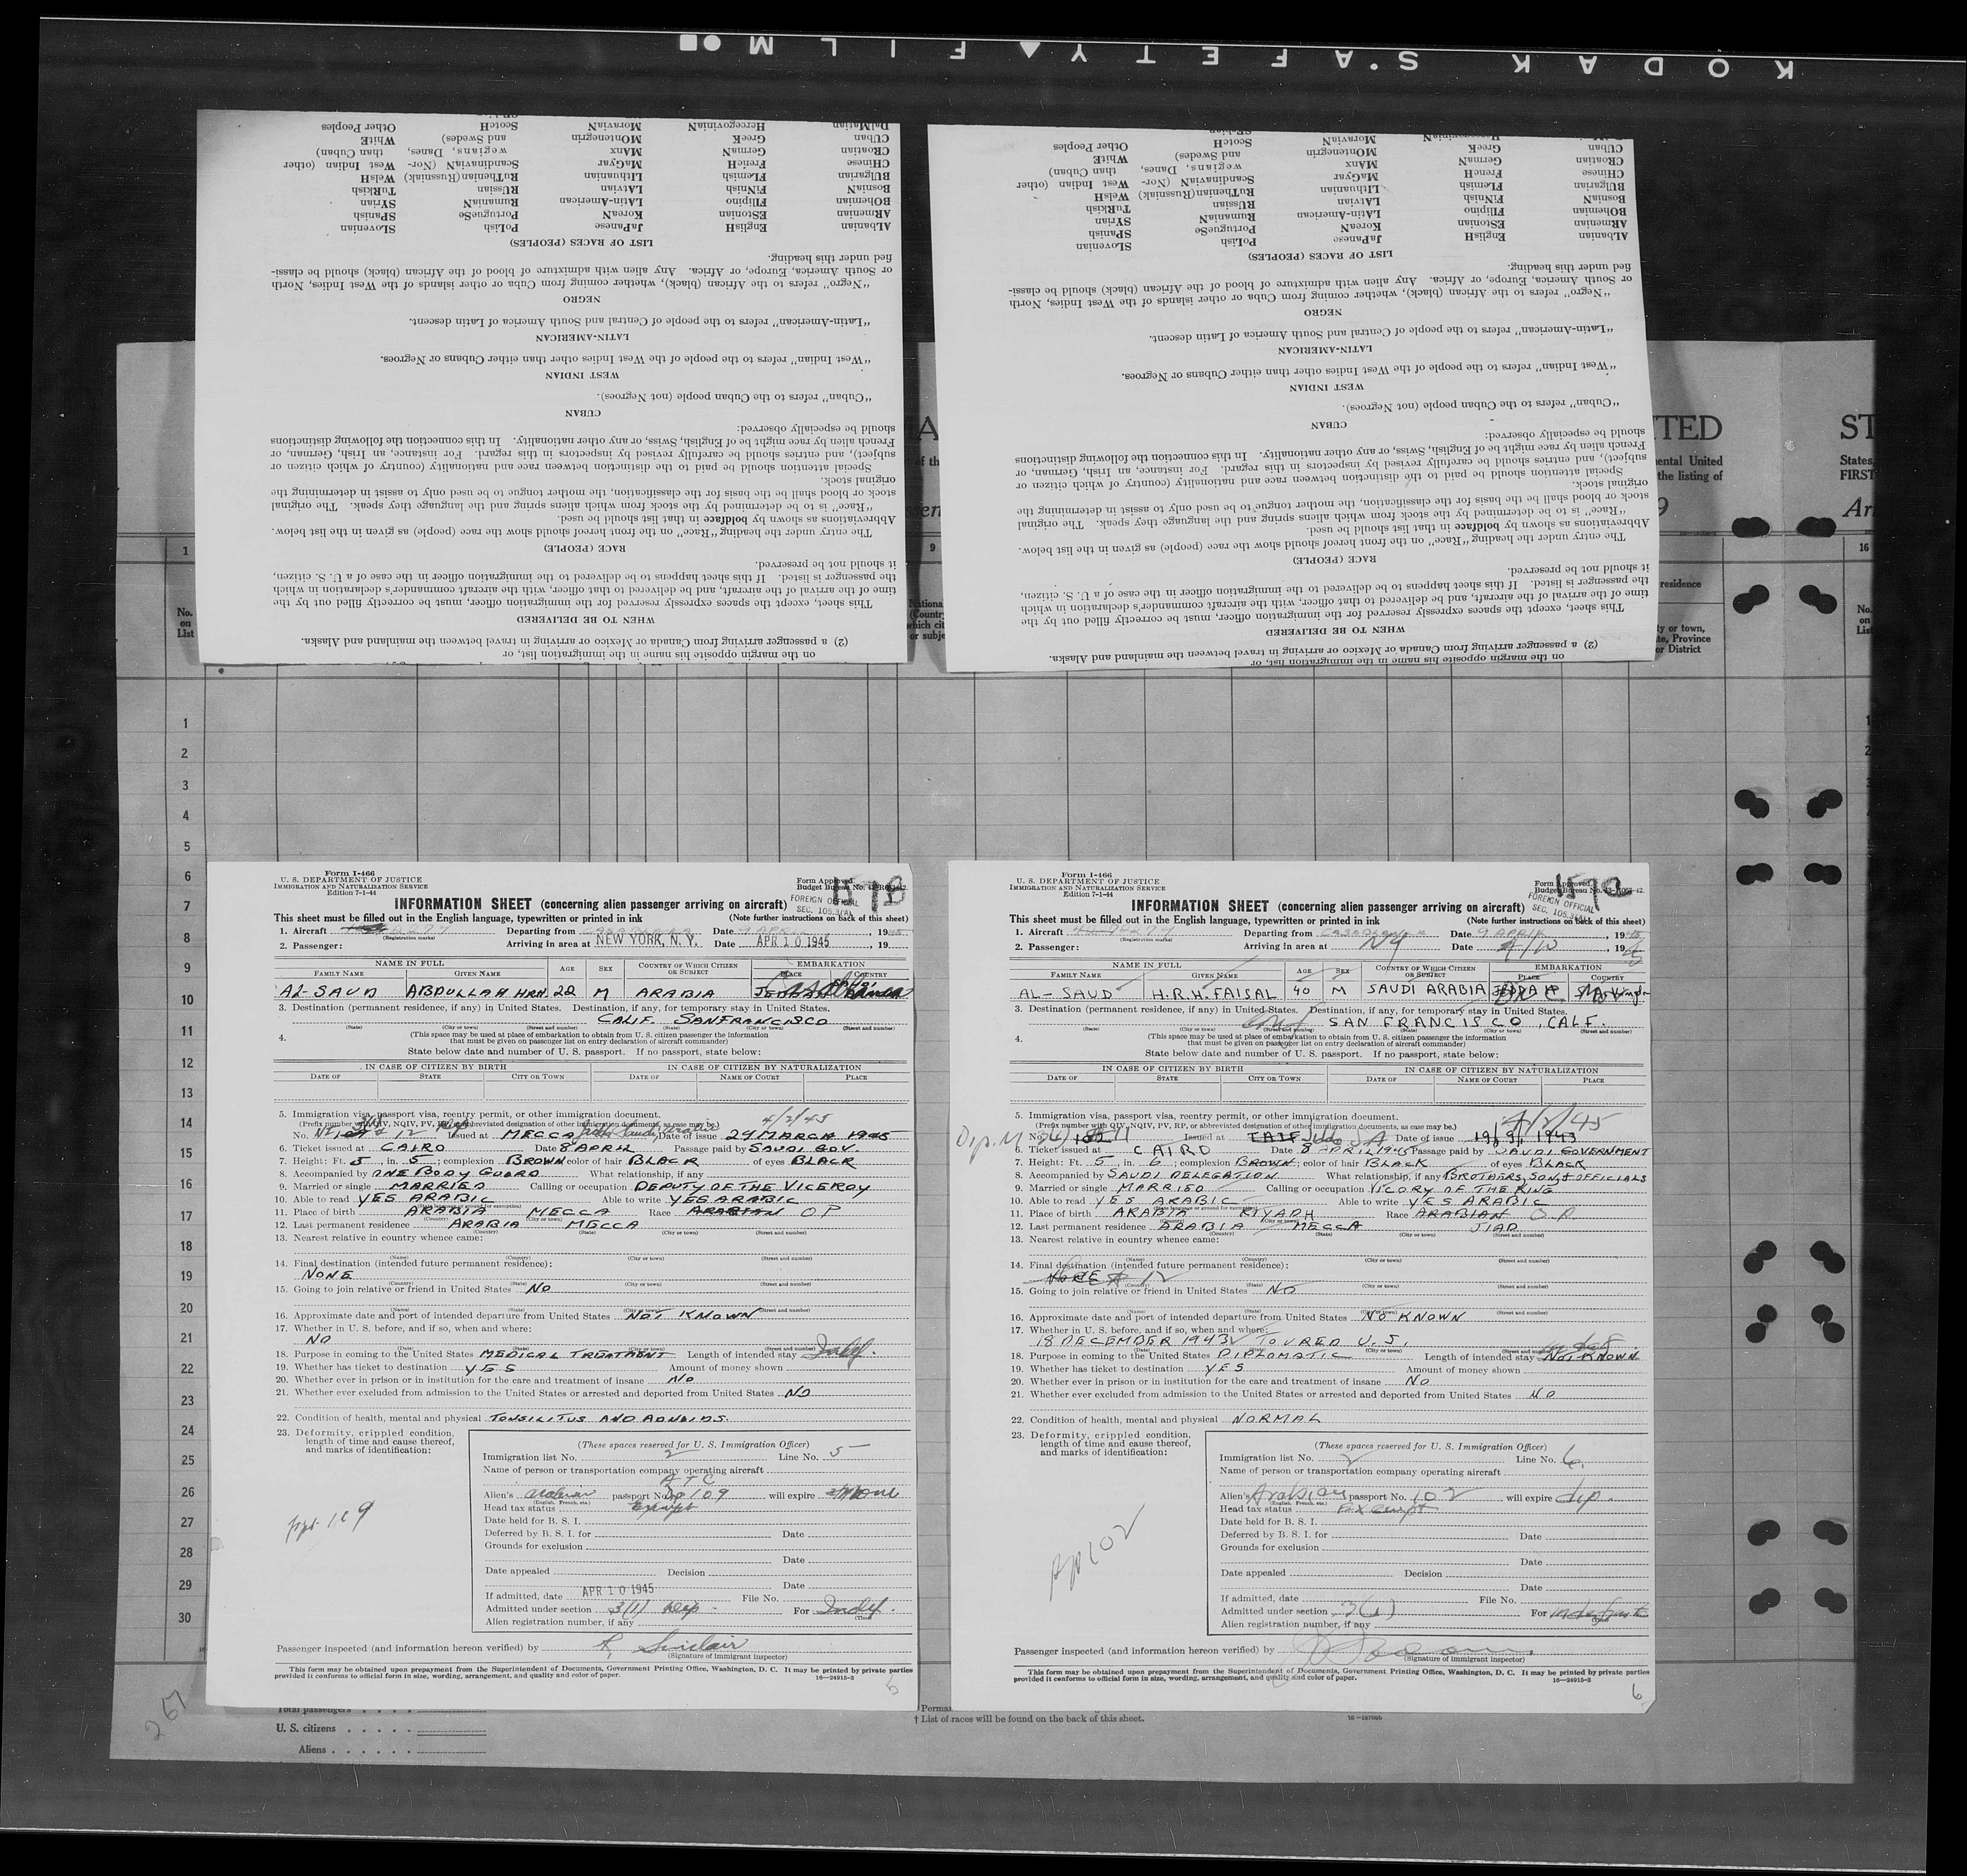 KODAK SAFETY FILM
DalMatian HercegovinaN MoravianN ScotcH Other Peoples
CUban GreeK MOntenegrin and Swedes) WhitE
CRoatian GermaN MAnx wegians, Danes, than Cuban)
CHinese FrencH MaGyar ScandinaviaN (Nor- West Indian (other
BUlgarian FLemish Lithuanian RuThenian(Russniak) WelsH
BosniaN FiNish LAtvian RUssian TuRkish
BOhemian FIlipino LAtin-American RumaniaN SYrian
ARmenian EStonian KoreaN PortugueSe SPanish
ALbanian EnglisH JaPanese PoLish SLovenian
LIST OF RACES (PEOPLES)
fied under this heading.
or South America, Europe, or Africa. Any alien with admixture of blood of the African (black) should be classi-
"Negro" refers to the African (black), whether coming from Cuba or other islands of the West Indies, North
NEGRO
"Latin-American" refers to the people of Central and South America of Latin descent.
LATIN-AMERICAN
"West Indian" refers to the people of the West Indies other than either Cubans or Negroes.
WEST INDIAN
"Cuban" refers to the Cuban people (not Negroes).
CUBAN
should be especially observed:
French alien by race might be of English, Swiss, or any other nationality. In this connection the following distinctions
subject), and entries should be carefully revised by inspectors in this regard. For instance, an Irish, German, or
Special attention should be paid to the distinction between race and nationality (country of which citizen or
original stock.
stock or blood shall be the basis for the classification, the mother tongue to be used only to assist in determining the
"Race" is to be determined by the stock from which aliens spring and the language they speak. The original
Abbreviations as shown by boldface in that list should be used.
The entry under the heading "Race" on the front hereof should show the race (people) as given in the list below.
RACE (PEOPLE)
it should not be preserved.
the passenger is listed. If this sheet happens to be delivered to the immigration officer in the case of a U. S. citizen,
time of the arrival of the aircraft, and be delivered to that officer, with the aircraft commander's declaration in which
This sheet, except the spaces expressly reserved for the immigration officer, must be correctly filled out by the
WHEN TO BE DELIVERED
(2) a passenger arriving from Canada or Mexico or arriving in travel between the mainland and Alaska.
on the margin opposite his name in the immigration list, or
Form I-466
U. S. DEPARTMENT OF JUSTICE
IMMIGRATION AND NATURALIZATION SERVICE
Edition 7-1-44
Form Approved.
FOREIGN OFFICIAL
INFORMATION SHEET (concerning alien passenger arriving on aircraft)
This sheet must be filled out in the English language, typewritten or printed in ink (Note further instructions on back of this sheet)
1. Aircraft Departing from CASABLANCA Date 9 APRIL, 1945
(Registration marks)
2. Passenger: Arriving in area at NEW YORK, N. Y. Date APR 10 1945, 19
NAME IN FULL AGE SEX COUNTRY OF WHICH CITIZEN OR SUBJECT EMBARKATION
FAMILY NAME GIVEN NAME PLACE COUNTRY
AL-SAUD ABDULLAH HRH. 22 M ARABIA JEDDAH
3. Destination (permanent residence, if any) in United States. Destination, if any, for temporary stay in United States.
CALIF. SANFRANCISCO
(State) (City or town) (Street and number) (State) (City or town)
4. (This space may be used at place of embarkation to obtain from U. S. citizen passenger the information
that must be given on passenger list on entry declaration of aircraft commander)
State below date and number of U. S. passport. If no passport, state below:
IN CASE OF CITIZEN BY BIRTH IN CASE OF CITIZEN BY NATURALIZATION
DATE OF STATE CITY OR TOWN DATE OF NAME OF COURT PLACE
5. Immigration visa, passport visa, reentry permit, or other immigration document. 4/2/45
(Prefix number with QIV, NQIV, PV, RP, or abbreviated designation of other immigration documents, as case may be.)
No. Issued at MECCA Date of issue 24 MARCH 1945
6. Ticket issued at CAIRO Date 8 APRIL Passage paid by SAUDI GOV.
7. Height: Ft. 5, in. 5; complexion BROWN color of hair BLACK of eyes BLACK
8. Accompanied by ONE BODY GUARD What relationship, if any
9. Married or single MARRIED Calling or occupation DEPUTY OF THE VICEROY
10. Able to read YES ARABIC Able to write YES ARABIC
11. Place of birth ARABIA MECCA Race ARABIAN O P
12. Last permanent residence ARABIA MECCA
13. Nearest relative in country whence came:
(Name) (Country) (City or town) (Street and number)
14. Final destination (intended future permanent residence):
NONE
(Country) (State) (City or town) (Street and number)
15. Going to join relative or friend in United States NO
(Name) (State) (City or town) (Street and number)
16. Approximate date and port of intended departure from United States NOT KNOWN
17. Whether in U. S. before, and if so, when and where:
NO
18. Purpose in coming to the United States MEDICAL TREATMENT Length of intended stay Indef.
19. Whether has ticket to destination YES Amount of money shown
20. Whether ever in prison or in institution for the care and treatment of insane NO
21. Whether ever excluded from admission to the United States or arrested and deported from United States NO
22. Condition of health, mental and physical TONSILITUS AND ADNOIDS.
23. Deformity, crippled condition,
length of time and cause thereof,
and marks of identification:
(These spaces reserved for U. S. Immigration Officer)
Immigration list No. 2 Line No. 5
Name of person or transportation company operating aircraft
A T C
Alien's passport No. 109 will expire
(English, French, etc.)
Head tax status Exempt
Date held for B. S. I.
Deferred by B. S. I. for Date
Grounds for exclusion
Date
Date appealed Decision
Date
If admitted, date APR 10 1945 File No.
Admitted under section 3(1) For Indef.
(Time)
Alien registration number, if any
Passenger inspected (and information hereon verified) by Sinclair
(Signature of immigrant inspector)
This form may be obtained upon prepayment from the Superintendent of Documents, Government Printing Office, Washington, D. C. It may be printed by private parties
provided it conforms to official form in size, wording, arrangement, and quality and color of paper. 16—24915-3
5
HercegovinaN MoravianN ScotcH Other Peoples
CUban GreeK MOntenegrin and Swedes) WhitE
CRoatian GermaN MAnx wegians, Danes, than Cuban)
CHinese FrencH MaGyar ScandinaviaN (Nor- West Indian (other
BUlgarian FLemish Lithuanian RuThenian(Russniak) WelsH
BosniaN FiNish LAtvian RUssian TuRkish
BOhemian FIlipino LAtin-American RumaniaN SYrian
ARmenian EStonian KoreaN PortugueSe SPanish
ALbanian EnglisH JaPanese PoLish SLovenian
LIST OF RACES (PEOPLES)
fied under this heading.
or South America, Europe, or Africa. Any alien with admixture of blood of the African (black) should be classi-
"Negro" refers to the African (black), whether coming from Cuba or other islands of the West Indies, North
NEGRO
"Latin-American" refers to the people of Central and South America of Latin descent.
LATIN-AMERICAN
"West Indian" refers to the people of the West Indies other than either Cubans or Negroes.
WEST INDIAN
"Cuban" refers to the Cuban people (not Negroes).
CUBAN
should be especially observed:
French alien by race might be of English, Swiss, or any other nationality. In this connection the following distinctions
subject), and entries should be carefully revised by inspectors in this regard. For instance, an Irish, German, or
Special attention should be paid to the distinction between race and nationality (country of which citizen or
original stock.
stock or blood shall be the basis for the classification, the mother tongue to be used only to assist in determining the
"Race" is to be determined by the stock from which aliens spring and the language they speak. The original
Abbreviations as shown by boldface in that list should be used.
The entry under the heading "Race" on the front hereof should show the race (people) as given in the list below.
RACE (PEOPLE)
it should not be preserved.
the passenger is listed. If this sheet happens to be delivered to the immigration officer in the case of a U. S. citizen,
time of the arrival of the aircraft, and be delivered to that officer, with the aircraft commander's declaration in which
This sheet, except the spaces expressly reserved for the immigration officer, must be correctly filled out by the
WHEN TO BE DELIVERED
(2) a passenger arriving from Canada or Mexico or arriving in travel between the mainland and Alaska.
on the margin opposite his name in the immigration list, or
Form I-466
U. S. DEPARTMENT OF JUSTICE
IMMIGRATION AND NATURALIZATION SERVICE
Edition 7-1-44
Form Approved.
FOREIGN OFFICIAL
INFORMATION SHEET (concerning alien passenger arriving on aircraft)
This sheet must be filled out in the English language, typewritten or printed in ink (Note further instructions on back of this sheet)
1. Aircraft Departing from Date 9 APRIL 1945
(Registration marks)
2. Passenger: Arriving in area at NY Date 4/10, 1945
NAME IN FULL AGE SEX COUNTRY OF WHICH CITIZEN OR SUBJECT EMBARKATION
FAMILY NAME GIVEN NAME PLACE COUNTRY
AL-SAUD H.R.H. FAISAL 40 M SAUDI ARABIA
3. Destination (permanent residence, if any) in United States. Destination, if any, for temporary stay in United States.
SAN FRANCISCO, CALF.
(State) (City or town) (Street and number) (State) (City or town) (Street and number)
4. (This space may be used at place of embarkation to obtain from U. S. citizen passenger the information
that must be given on passenger list on entry declaration of aircraft commander)
State below date and number of U. S. passport. If no passport, state below:
IN CASE OF CITIZEN BY BIRTH IN CASE OF CITIZEN BY NATURALIZATION
DATE OF STATE CITY OR TOWN DATE OF NAME OF COURT PLACE
5. Immigration visa, passport visa, reentry permit, or other immigration document. 4/2/45
(Prefix number with QIV, NQIV, PV, RP, or abbreviated designation of other immigration documents, as case may be.)
No. Issued at TAIF Date of issue 19, 9, 1943
6. Ticket issued at CAIRO Date 8 APRIL 1945 Passage paid by SAUDI GOVERNMENT
7. Height: Ft. 5, in. 6; complexion BROWN; color of hair BLACK of eyes BLACK
8. Accompanied by SAUDI DELEGATION What relationship, if any BROTHERS, SON, & OFFICIALS
9. Married or single MARRIED Calling or occupation VICORY OF THE KING
10. Able to read YES ARABIC Able to write YES ARABIC
11. Place of birth ARABIA RIYADH Race ARABIAN O.P.
12. Last permanent residence ARABIA MECCA JIAD
13. Nearest relative in country whence came:
(Name) (Country) (City or town) (Street and number)
14. Final destination (intended future permanent residence):
NONE
(Country) (City or town) (Street and number)
15. Going to join relative or friend in United States NO
(Name) (State) (City or town) (Street and number)
16. Approximate date and port of intended departure from United States NO KNOWN
17. Whether in U. S. before, and if so, when and where:
18 DECEMBER 1943 TOURED U.S.
18. Purpose in coming to the United States DIPLOMATIC Length of intended stay NOT KNOWN
19. Whether has ticket to destination YES Amount of money shown
20. Whether ever in prison or in institution for the care and treatment of insane NO
21. Whether ever excluded from admission to the United States or arrested and deported from United States NO
22. Condition of health, mental and physical NORMAL
23. Deformity, crippled condition,
length of time and cause thereof,
and marks of identification:
(These spaces reserved for U. S. Immigration Officer)
Immigration list No. 2 Line No. 6
Name of person or transportation company operating aircraft
Alien's Arabian passport No. 102 will expire dip.
(English, French, etc.)
Head tax status Exempt
Date held for B. S. I.
Deferred by B. S. I. for Date
Grounds for exclusion
Date
Date appealed Decision
Date
If admitted, date File No.
Admitted under section 3(1) For indefinite
(Time)
Alien registration number, if any
Passenger inspected (and information hereon verified) by
(Signature of immigrant inspector)
This form may be obtained upon prepayment from the Superintendent of Documents, Government Printing Office, Washington, D. C. It may be printed by private parties
provided it conforms to official form in size, wording, arrangement, and quality and color of paper. 16—24915-3
6
267
Total passengers
U. S. citizens
Aliens
† List of races will be found on the back of this sheet.